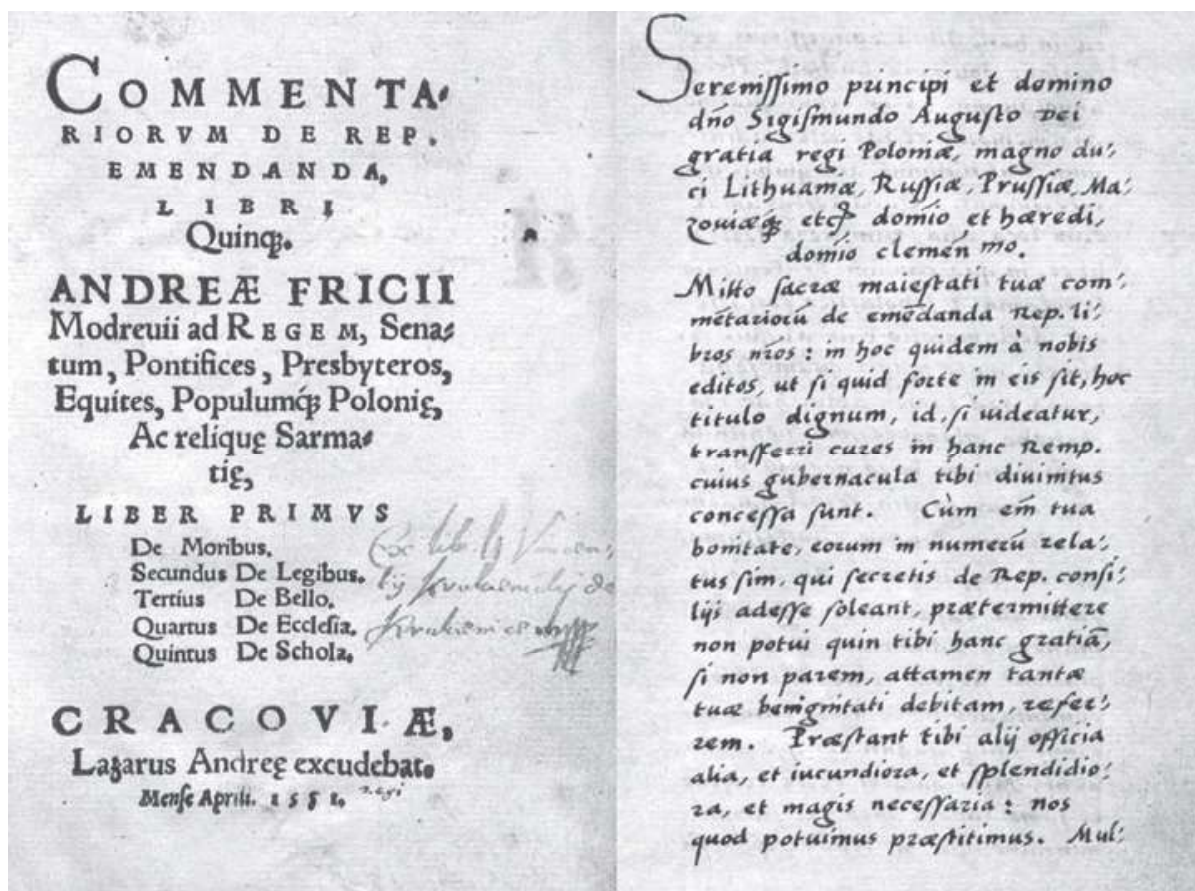 COMMENTA⸗
RIORVM DE REP.
EMENDANDA,
LIBRI
Quinqꝫ.
ANDREÆ FRICII
Modreuii ad REGEM, Sena⸗
tum, Pontifices, Presbyteros,
Equites, Populumqꝫ Polonię,
Ac relique Sarma⸗
tię,
LIBER PRIMVS
De Moribus.
Secundus De Legibus.
Tertius De Bello.
Quartus De Ecclesia.
Quintus De Schola.
CRACOVIÆ,
Lazarus Andreę excudebat.
Mense Aprili. 1551.
Serenissimo principi et domino
dño Sigiſmundo Auguſto Dei
gratia regi Poloniæ, magno du:
ci Lithuaniæ, Ruſſiæ, Pruſſiæ, Ma:
zouiæqꝫ etc̃ domĩo et hæredi,
domĩo clemeñ mo.
Mitto ſacræ maieſtati tuæ com:
mētariorū de emēdanda Rep. li:
bros nr̃os: in hoc quidem à nobis
editos, ut ſi quid forte in eis ſit, hoc
titulo dignum, id, ſi uideatur,
tranſferri cures in hanc Remp.
cuius gubernacula tibi diuinitus
conceſſa ſunt. Cùm em̃ tua
bonitate, eorum in numerū rela:
tus ſim, qui ſecretis de Rep. conſi:
lijs adeſſe ſoleant, prætermittere
non potui quin tibi hanc gratiā,
ſi non parem, attamen tantæ
tuæ benignitati debitam, refer:
rem. Præſtant tibi alij officia
alia, et iucundiora, et ſplendidio:
ra, et magis neceſſaria: nos
quod potuimus præſtitimus. Mul: